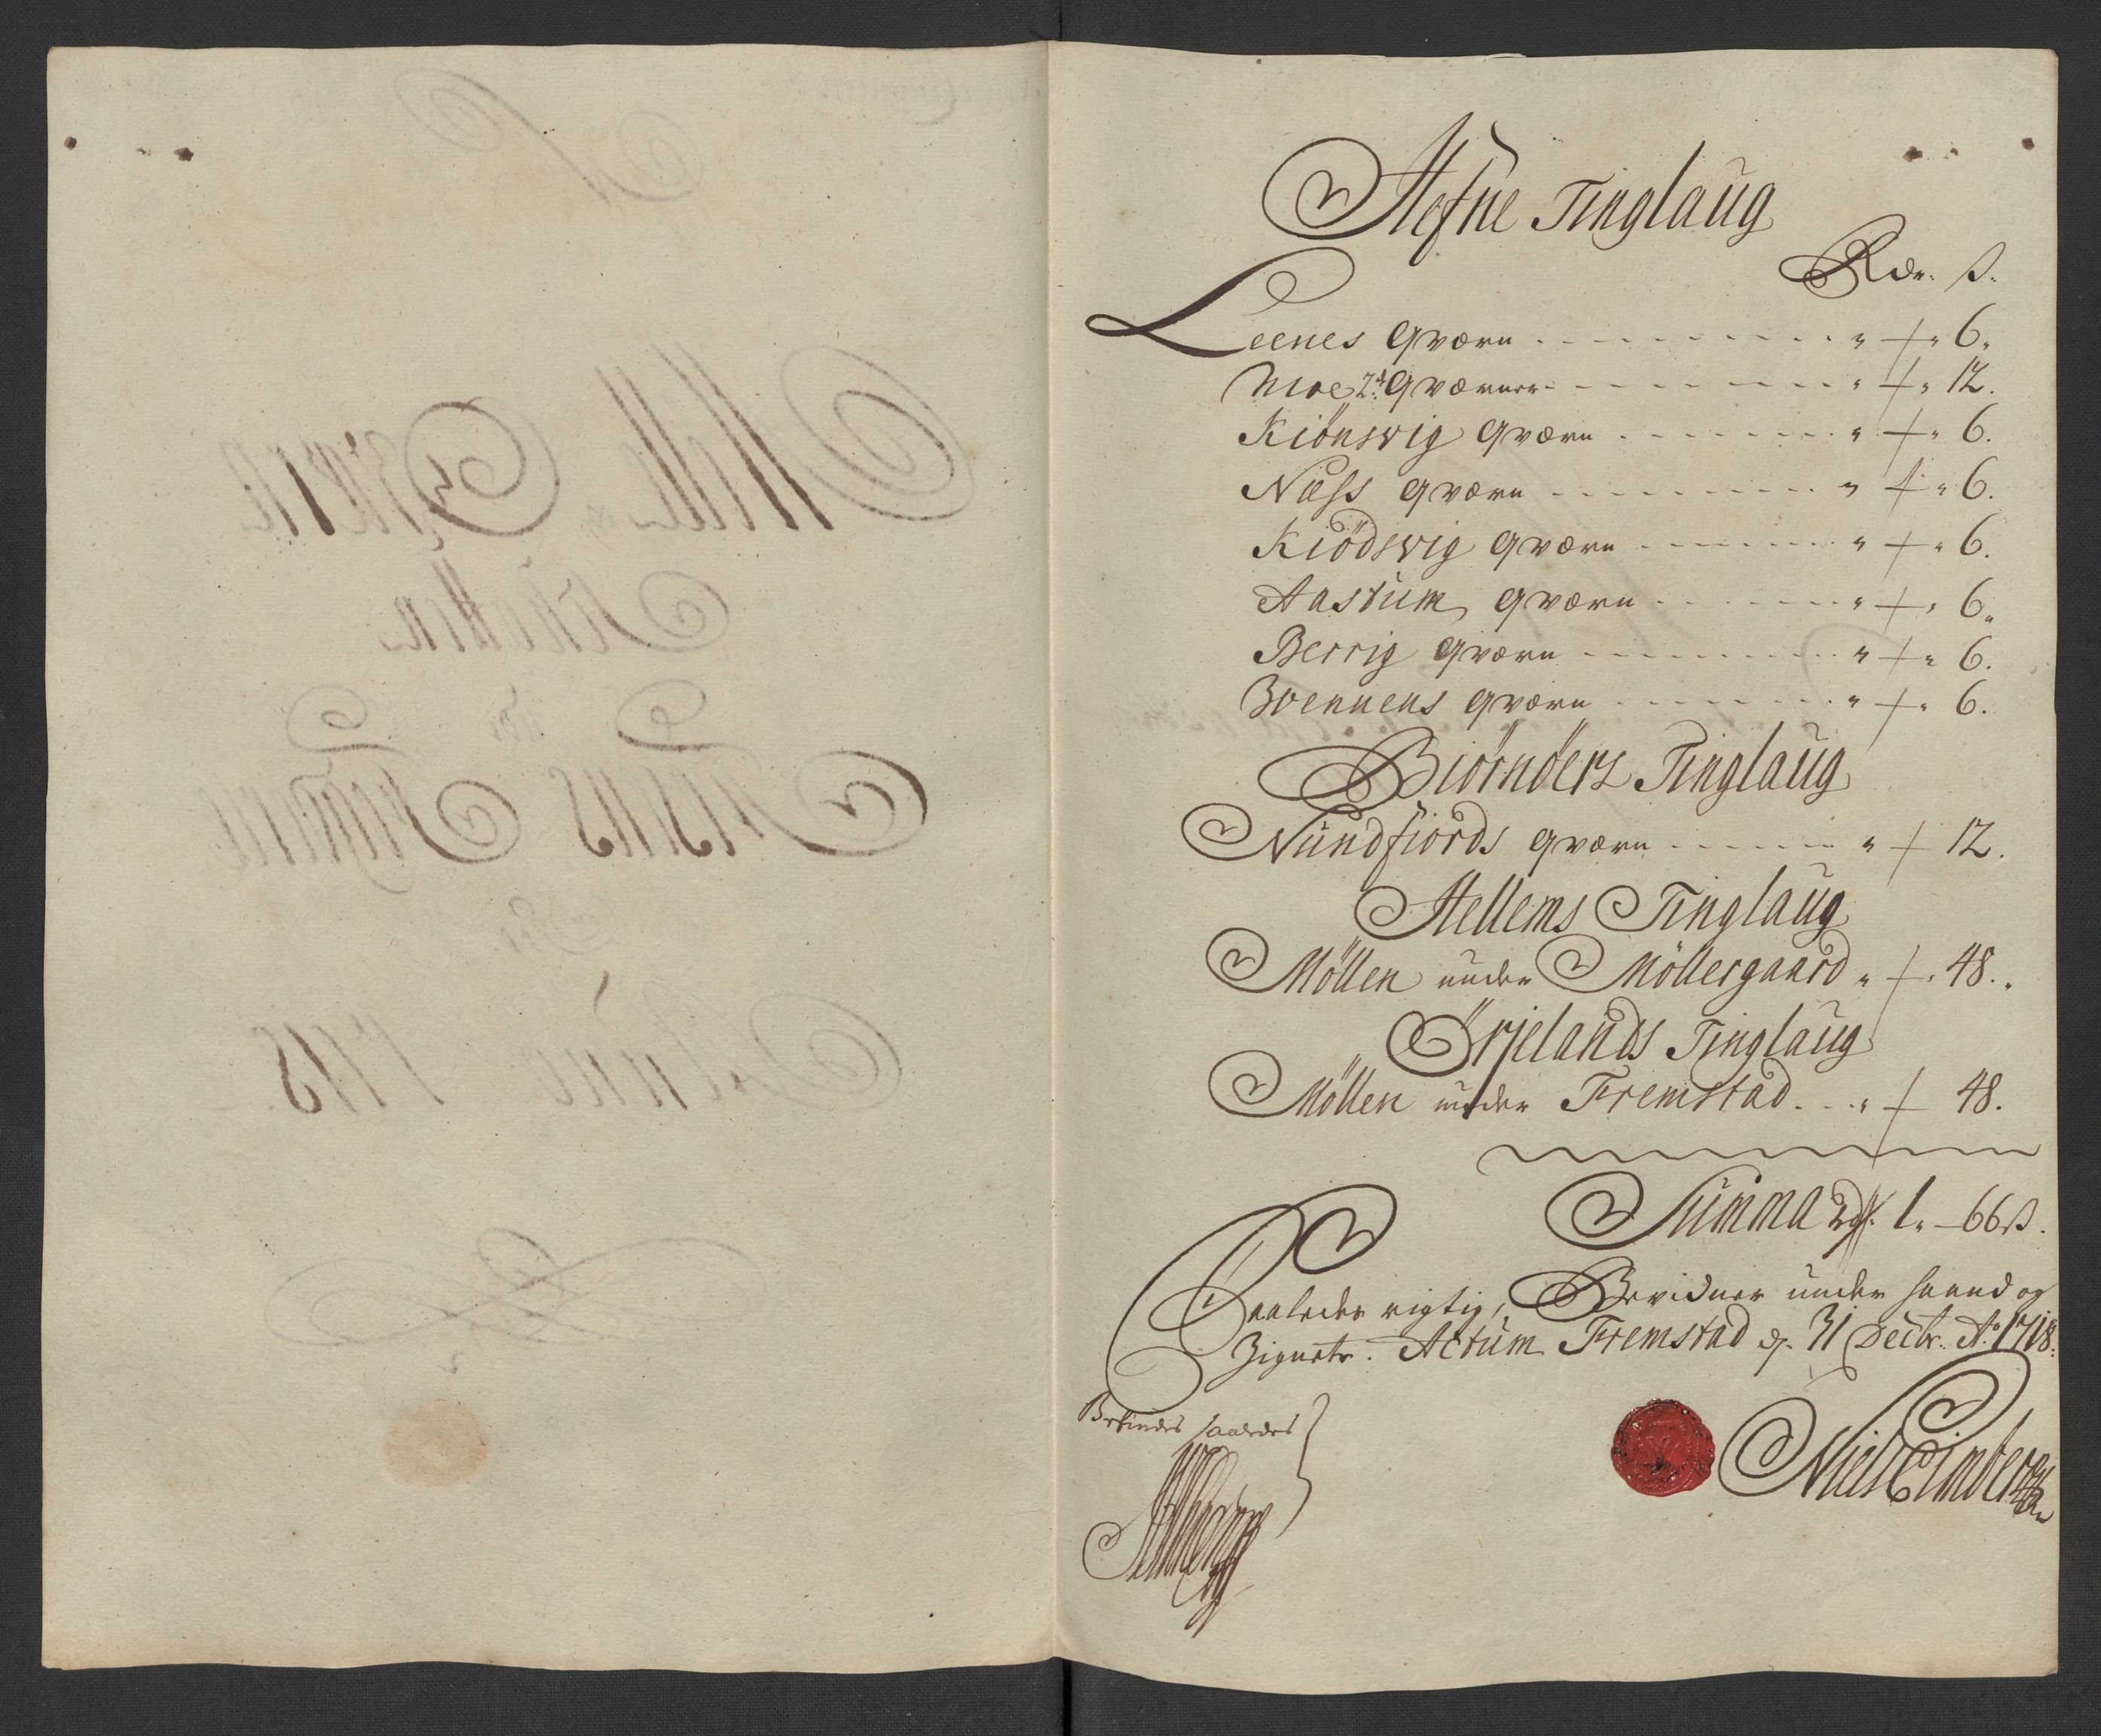 Hefne Tinglaug
Rdr. ß.
Leenes Qværn " " 6.
Moe 2de Qværner " " 12.
Kiönsvig Qværn " " 6.
Næss Qværn " " 6.
Kiödsvig Qværn " " 6.
Aastum Qværn " " 6.
Berrig Qværn " " 6.
Svennens Qværn " " 6.
Biörnöers Tinglaug
Nundfiords Qværn " 12.
Hellems Tinglaug
Möllen under Möllergaard " " 48.
Örjelands Tinglaug
Möllen under Fremstad " 48.
Summa rdr. 1. 66 ß.
Saaledes rigtig, Bevidner under haand og
Zignete. Actum Fremstad d. 31 Decbr. Ao. 1718.
Befindes saaledes